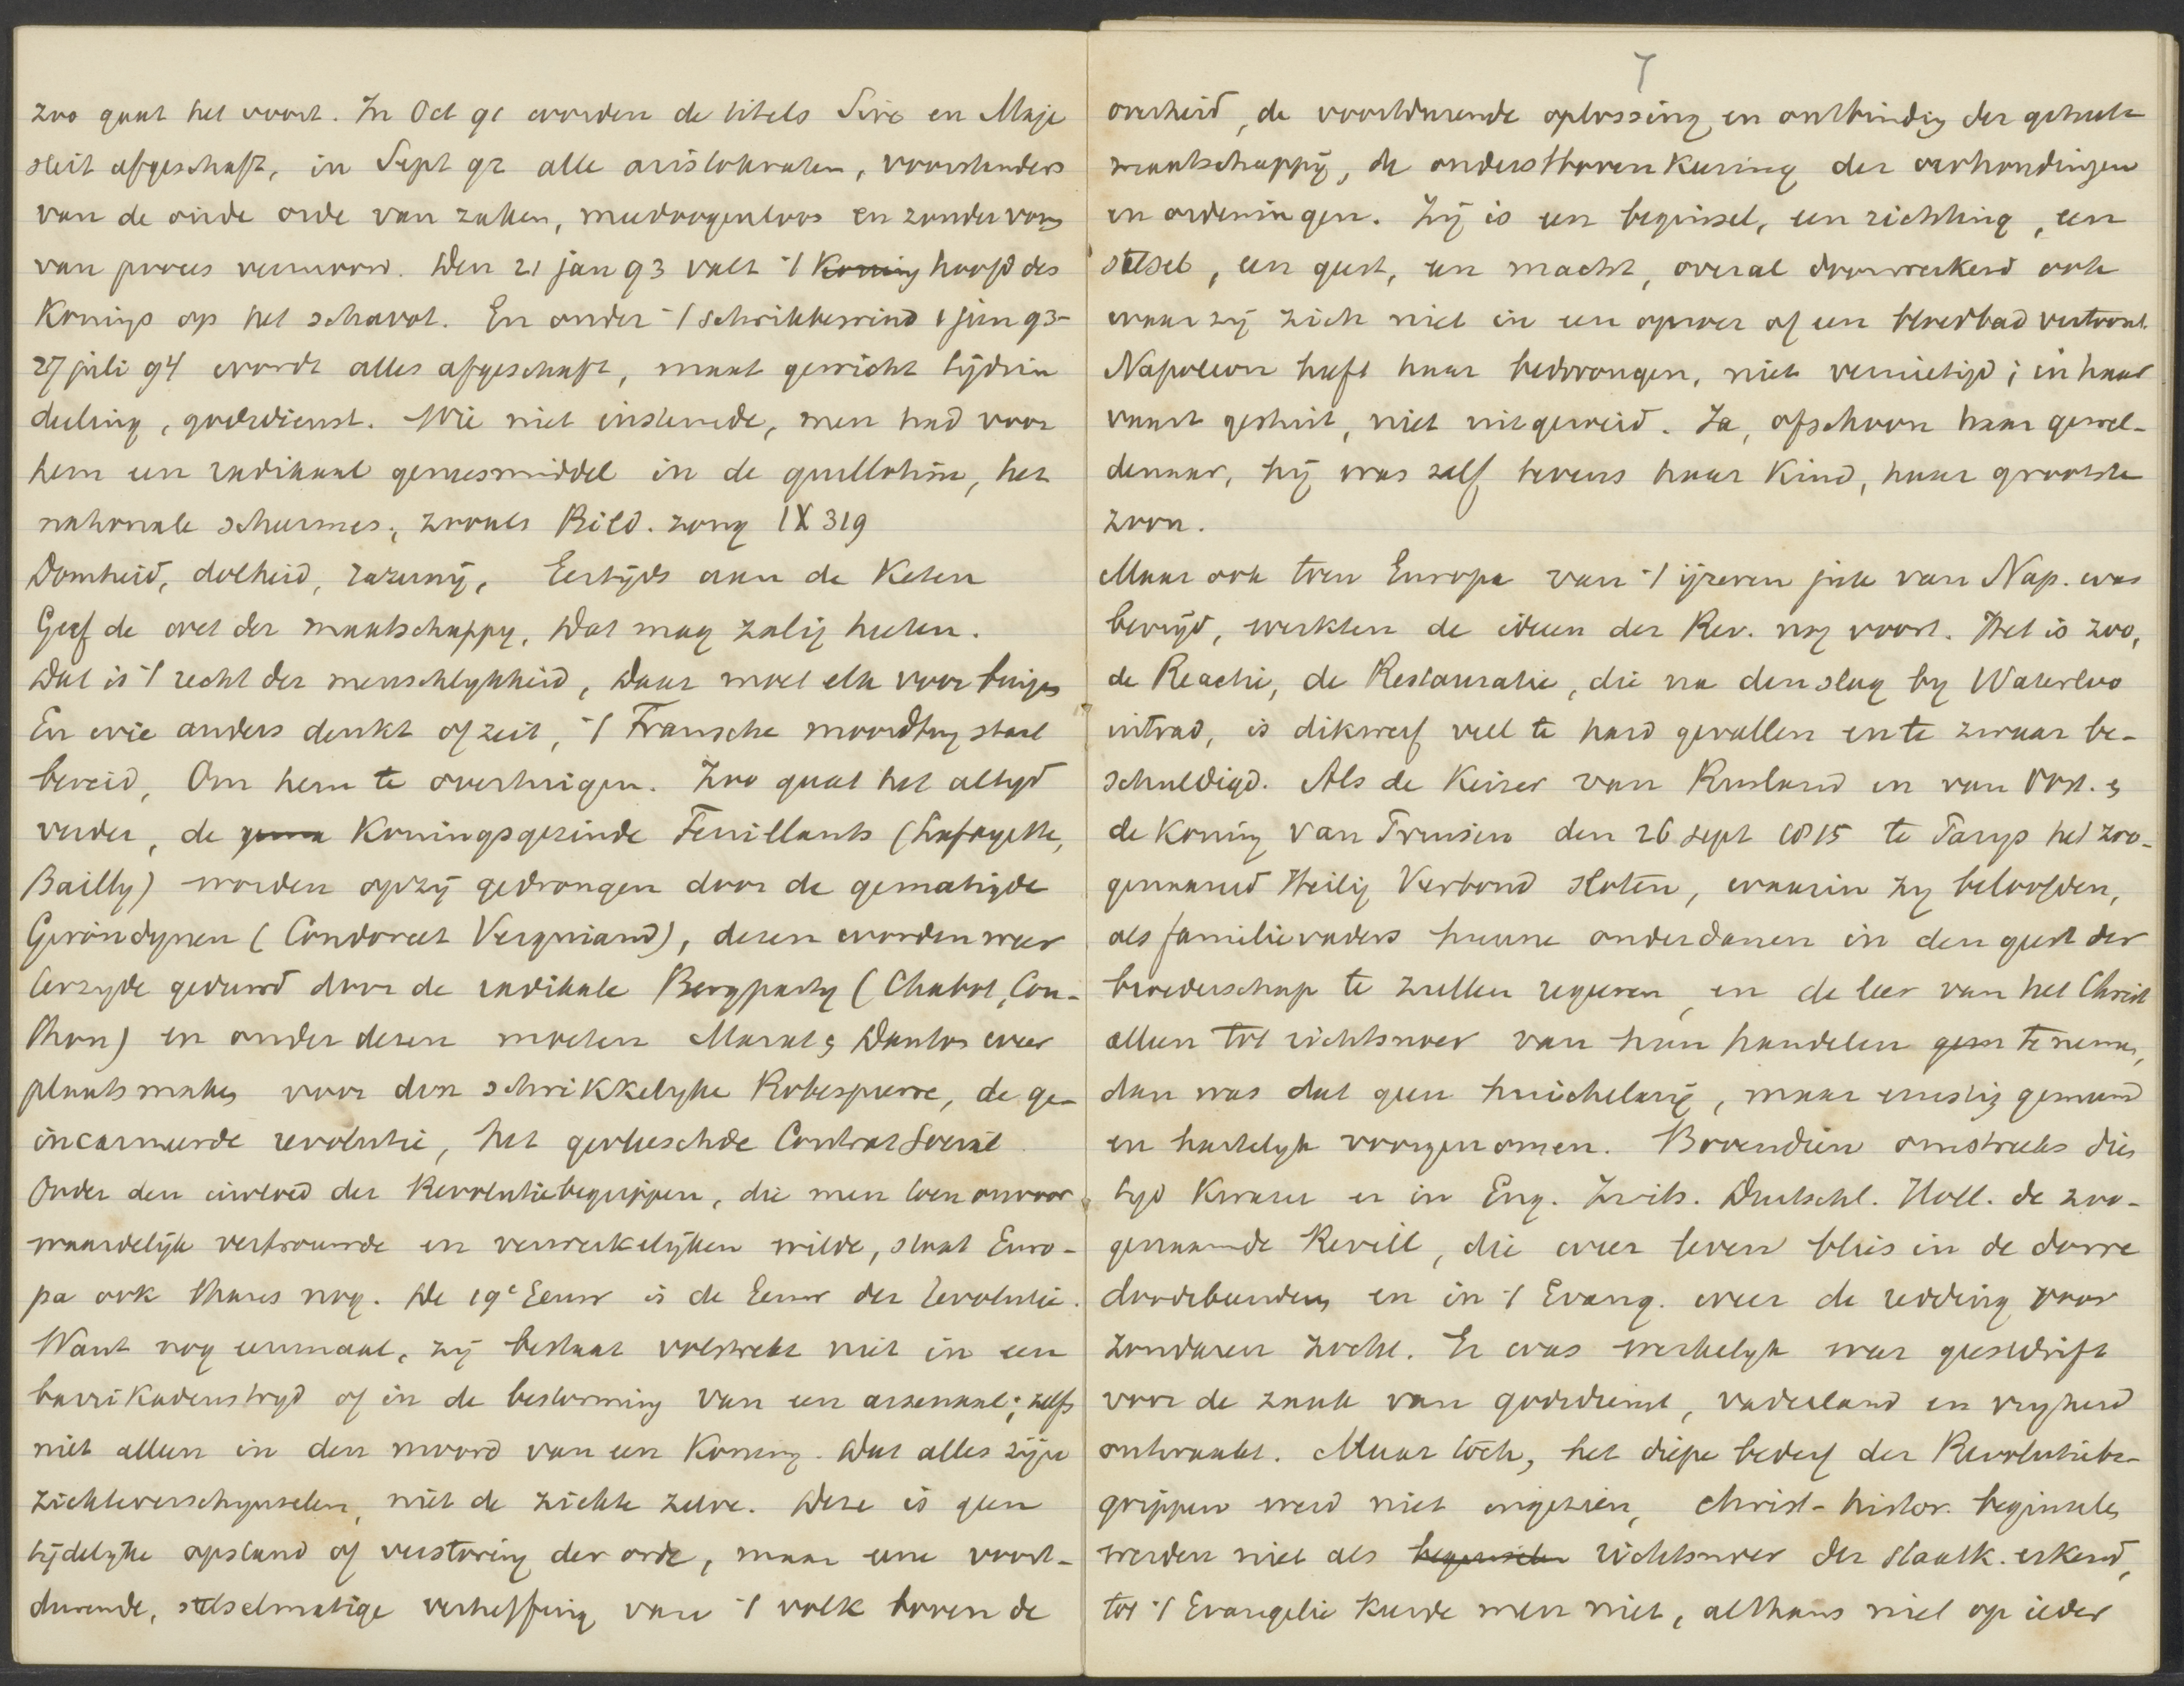 zoo gaat het voort. In Oct 91 worden de titels Sire en Maje
steit afgeschaft, in Sept 92 alle aristokraten, voorstanders
van de oude orde van zaken, meedoogenloos en zonder vorm
van proces vermoord. Den 21 jan 93 valt 't Koning hoofd des
Konings op het schavot. En onder 't schrikbewind 1 jun 93-
27 juli 94 wordt alles afgeschaft, maat gewicht tijdin
deeling, godsdienst. Wie niet instemde, men had voor
hem een radikaal geneesmiddel in de guillotine, het
nationale scheermes, zooals Bild. zong IX 319
Domheid, dolheid, razernij, Eertijds aan de Keten
Geef de wet der maatschappy, Dat mag zalig heeten.
Dat is 't recht der menschlykheid, Daar moet elk voor buigen
En wie anders denkt of zeit, 't Fransche moordtuig staat
bereid, Om hem te overtuigen. Zoo gaat het altyd
verder, de Koningsgezinde Feuillants (Lafayette,
Bailly) worden opzij gedrongen door de gematigde
Girondynen (Condorcet Vergniaud), dezen worden weer
terzyde geduwd door de radikale Bergparty (Chabot, Cou-
thon) en onder dezen moeten Marat & Danton weer
plaats maken voor den schrikkelyke Robespierre, de ge-
incarneerde revolutie, het gevleeschde Contrat Social
Onder den invloed der Revolutiebegrippen, die men toen onvoor
waardelijk vertrouwde en verwerkelijken wilde, staat Euro-
pa ook thans nog. De 19e Eeuw is de Eeuw der Revolutie.
Want nog eenmaal, zij bestaat volstrekt niet in een
barrikadenstryd of in de bestorming van een arsenaal; zelfs
niet alleen in den moord van een Koning. Dat alles zijn
ziekteverschynselen, niet de ziekte zelve. Deze is geen
tijdelyke opstand of verstoring der orde, maar eene voort-
durende, stelselmatige verheffing van 't volk boven de
7
overheid, de voortdurende oplossing en ontbinding der geheele
maatschappij, de onderstbovenkeering der verhoudingen
en ordeningen. Zij is een beginsel, een richting, een
stelsel, een geest, een macht, overal doorwerkend ook
waar zij zich niet in een oproer of een bloedbad vertoont.
Napoleon heeft haar bedwongen, niet vernietigd; in haar
vaart gestuit, niet uitgeroeid. Ja, ofschoon haar gewel-
denaar, hij was zelf tevens haar Kind, haar grootste
zoon.
Maar ook toen Europa van 't ijzeren juk van Nap. was
bevrijd, werkten de ideen der Rev. nog voort. Het is zoo,
de Reactie, de Restauratie, die na den slag by Waterloo
intrad, is dikwerf veel te hard gevallen en te zwaar be-
schuldigd. Als de Keizer van Rusland en van Oost. &
de Koning van Pruisen den 26 sept 1815 te Parys het zoo-
genaamd Heilig Verbond sloten, waarin zy beloofden,
als familievaders hunne onderdanen in den geest der
broederschap te zullen regeren, en de leer van het Christ
alleen tot richtsnoer van hun handelen te nemen,
dan was dat geen huichelarij, maar ernstig gemeend
en hartelyk voorgenomen. Bovendien omstreeks dien
tyd Kwam er in Eng. Zwits. Duitschl. Holl. de zoo-
genaamde Reveil, die weer leven blies in de dorre
doodsbeenderen en in 't Evang. weer de redding voor
zondaren zocht. Er was werkelyk weer geestdrift
voor de zaak van godsdienst, vaderland en vryheid
ontwaakt. Maar toch, het diepe bederf der Revolutiebe-
grippen werd niet ingezien, christ-histor. beginselen
werden niet als beginselen richtsnoer der staatk. erkend,
tot 't Evangelie keerde men niet, althans niet op ieder